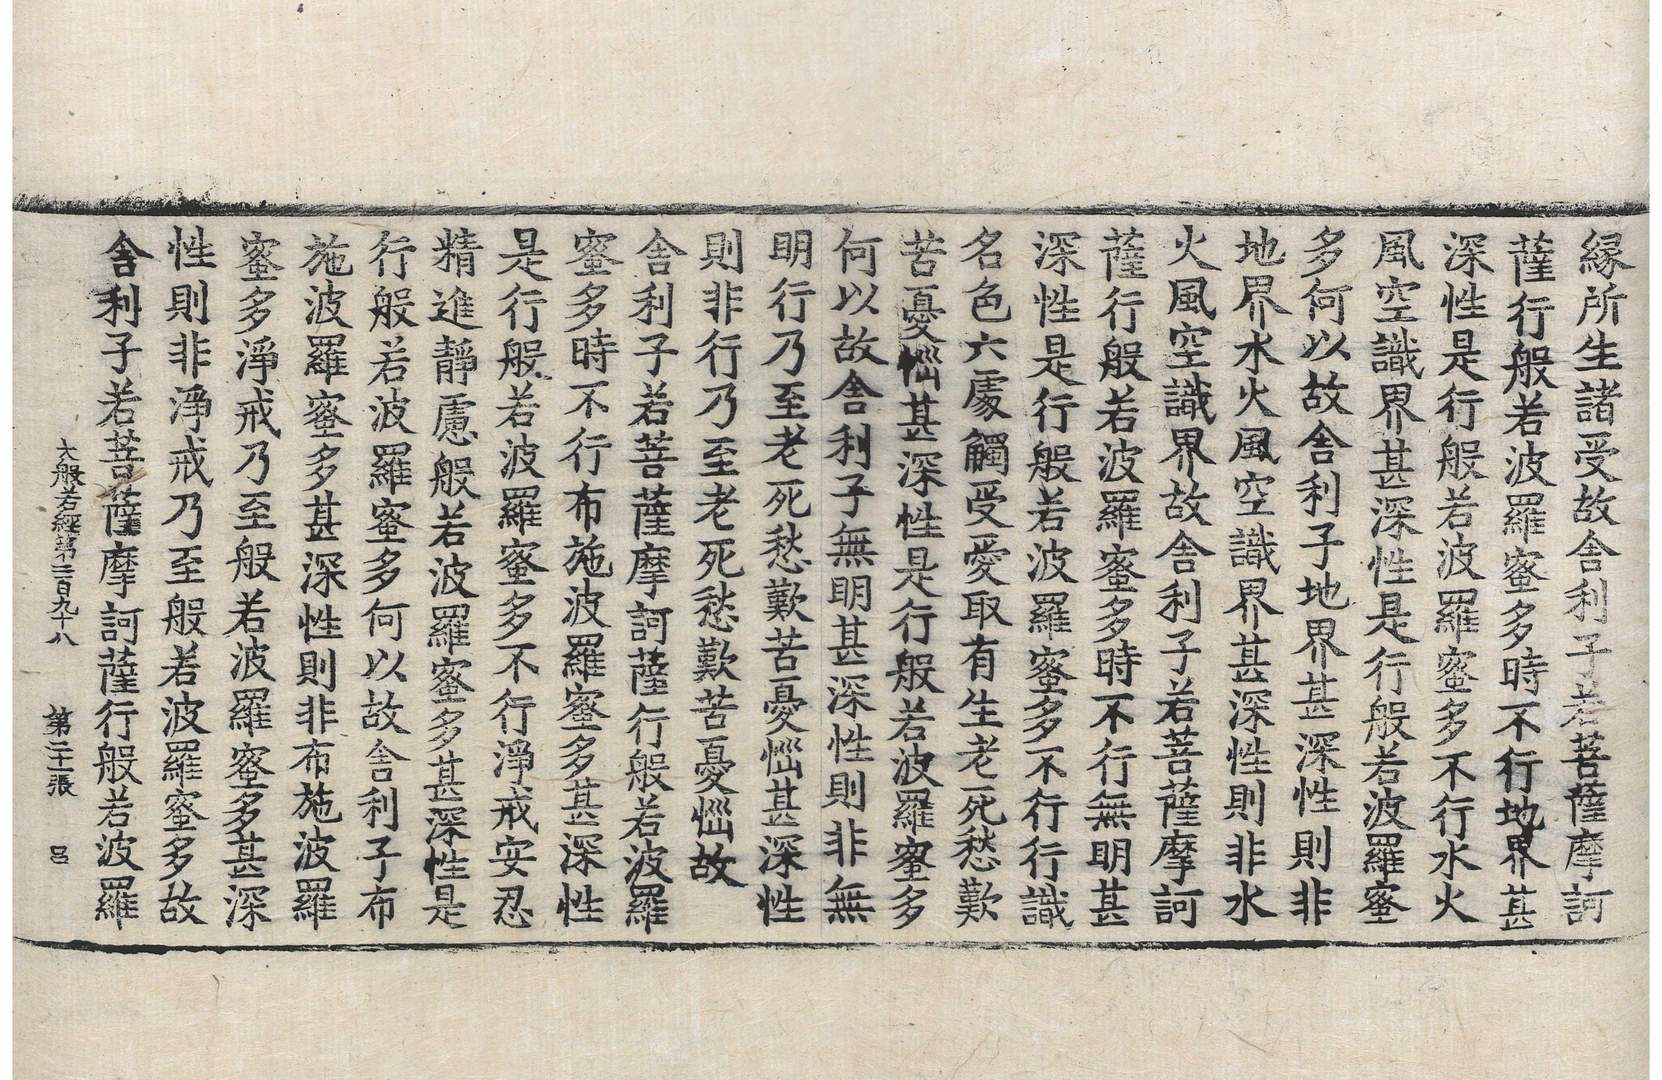 緣所生諸受故舍利子若菩薩摩訶
薩行般若波羅蜜多時不行地界甚
深性是行般若波羅蜜多不行水火
風空識界甚深性是行般若波羅蜜
多何以故舍利子地界甚深性則非
地界水火風空識界甚深性則非水
火風空識界故舍利子若菩薩摩訶
薩行般若波羅蜜多時不行無明甚
深性是行般若波羅蜜多不行行識
名色六處觸受愛取有生老死愁歎
苦憂惱甚深性是行般若波羅蜜多
何以故舍利子無明甚深性則非無
明行乃至老死愁歎苦憂惱甚深性
則非行乃至老死愁歎苦憂惱故
舍利子若菩薩摩訶薩行般若波羅
蜜多時不行布施波羅蜜多甚深性
是行般若波羅蜜多不行淨戒安忍
精進靜慮般若波羅蜜多甚深性是
行般若波羅蜜多何以故舍利子布
施波羅蜜多甚深性則非布施波羅
蜜多淨戒乃至般若波羅蜜多甚深
性則非淨戒乃至般若波羅蜜多故
舍利子若菩薩摩訶薩行般若波羅
大般若經第二百九十八 第二十一張 呂